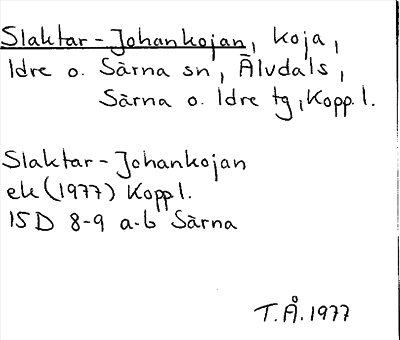 Slaktar-Johankojan, koja,
Idre o. Särna sn, Älvdals,
Särna o. Idre tg, Kopp.l.
Slaktar-Johankojan
ek (1977) Koppl.
15D 8-9 a-b Särna
T.Å. 1977